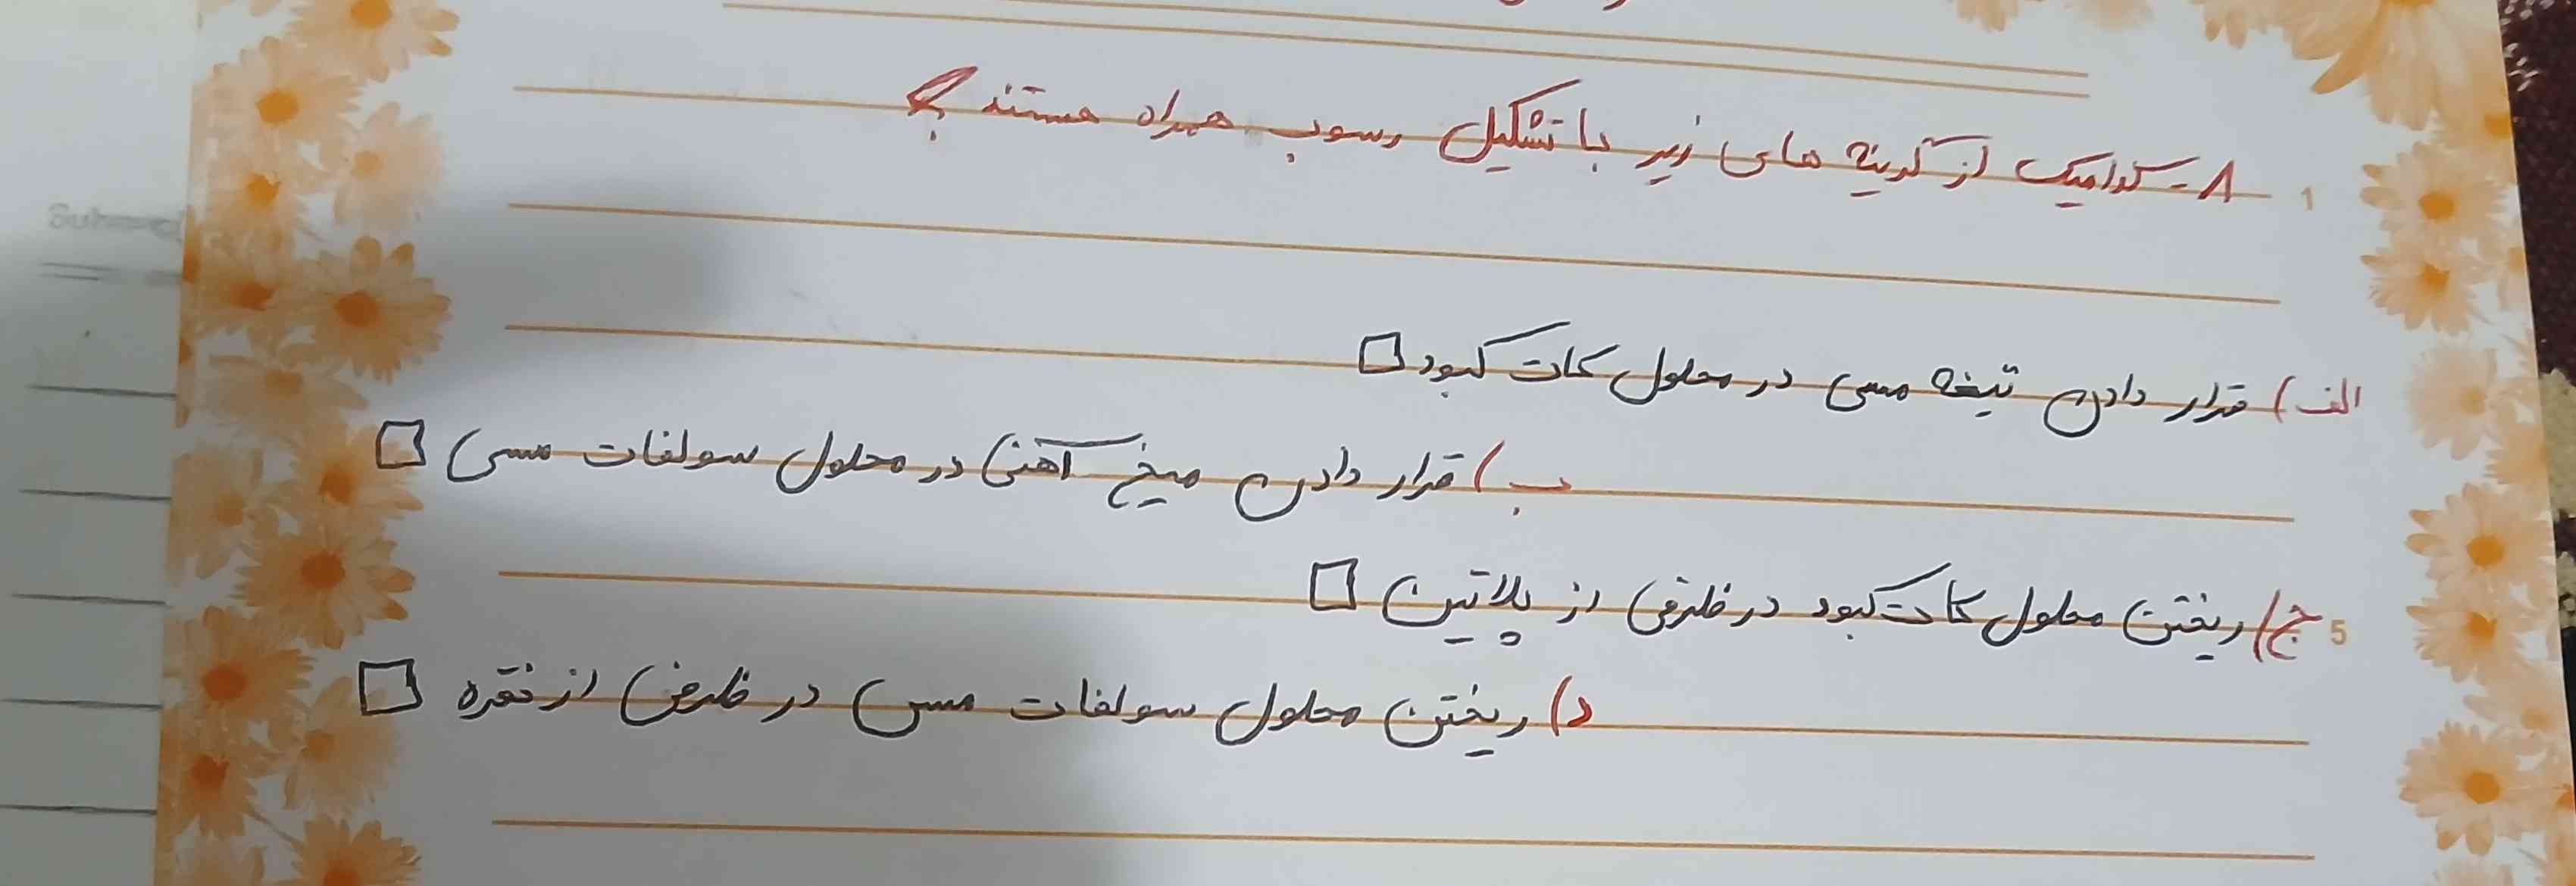 ۸- کدامیک از گزینه های زیر با تشکیل رسوب همراه هستند؟
1
الف) قرار دادن تیغه مسی در محلول کات کبود □
ب) قرار دادن میخ آهنی در محلول سولفات مس □
ج) ریختن محلول کات کبود در ظرفی از پلاتین □
5
د) ریختن محلول سولفات مس در ظرفی از نقره □